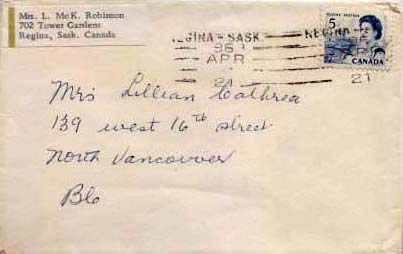 Mrs. L. McK. Robinson
702 Tower Gardens
Regina, Sask. Canada
REGINA - SASK
APR
21
REGINA
21
5
CANADA
Mrs Lillian Cathrea
139 west 16th street
North Vancouver
BC